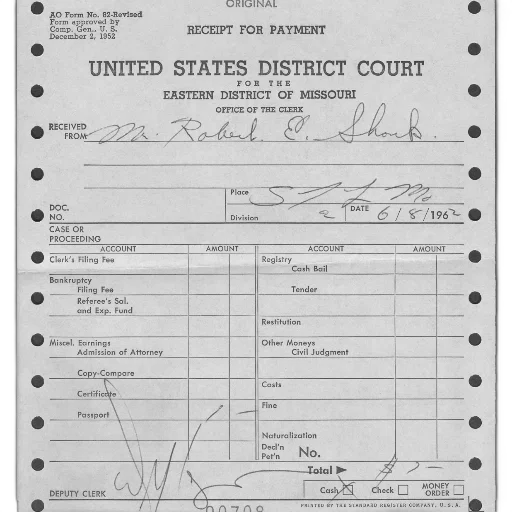 ORIGINAL
AO Form No. 82-Revised
Form approved by
Comp. Gen., U. S.
December 2, 1952
RECEIPT FOR PAYMENT
UNITED STATES DISTRICT COURT
FOR THE
EASTERN DISTRICT OF MISSOURI
OFFICE OF THE CLERK
RECEIVED FROM Mr. Robert E. Shank.
Place ST L Mo
DOC. NO.
Division 2 DATE 6/8/1962
CASE OR PROCEEDING
ACCOUNT AMOUNT ACCOUNT AMOUNT
Clerk's Filing Fee Registry
Cash Bail
Bankruptcy
Filing Fee Tender
Referee's Sal.
and Exp. Fund
Restitution
Miscel. Earnings Other Moneys
Admission of Attorney Civil Judgment
Copy-Compare
Costs
Certificate
Fine
Passport
Naturalization
Decl'n
Pet'n No.
Total ► $
DEPUTY CLERK Cash Check MONEY ORDER
PRINTED BY THE STANDARD REGISTER COMPANY, U. S. A.
00708